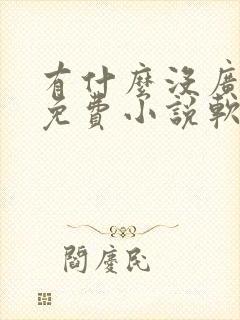 有什麼沒廣
免費小說軟
閻慶民